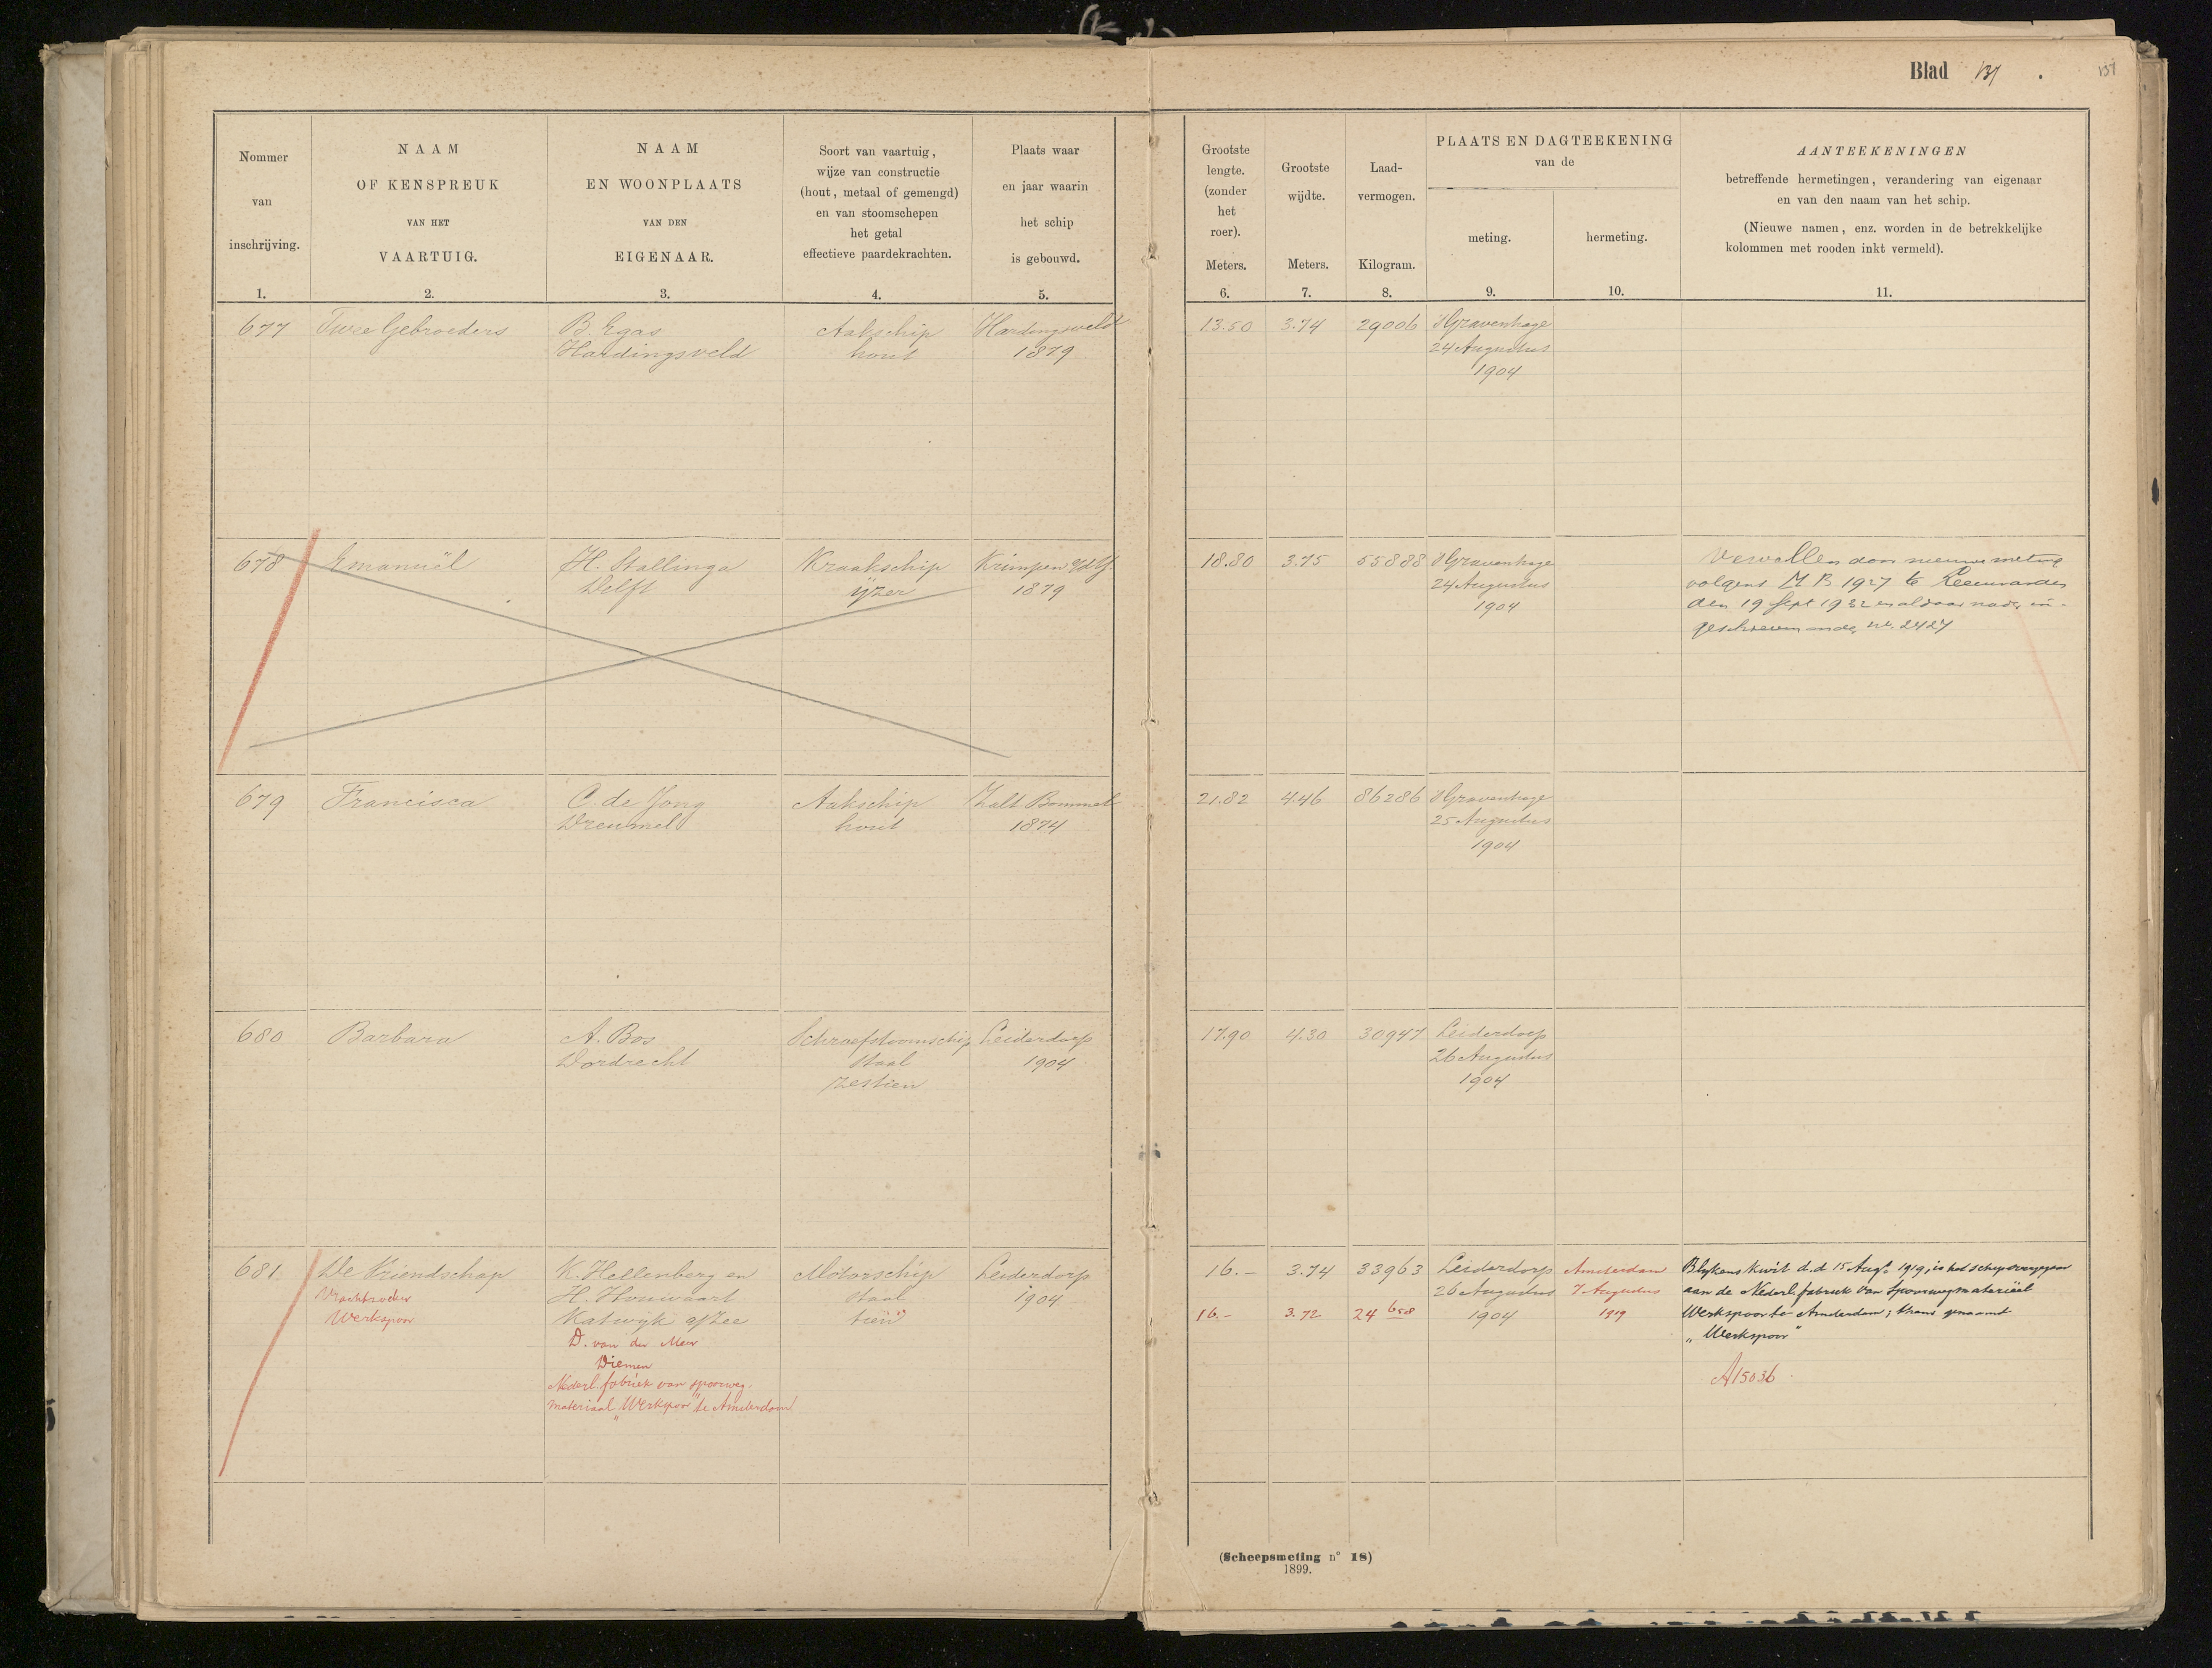 Blad 137 .
137
Nommer
van
inschrijving.
1.
NAAM
OF KENSPREUK
VAN HET
VAARTUIG.
2.
NAAM
EN WOONPLAATS
VAN DEN
EIGENAAR.
3.
Soort van vaartuig,
wijze van constructie
(hout, metaal of gemengd)
en van stoomschepen
het getal
effectieve paardekrachten.
4.
Plaats waar
en jaar waarin
het schip
is gebouwd.
5.
Grootste
lengte.
(zonder
het
roer).
Meters.
6.
Grootste
wijdte.
Meters.
7.
Laad-
vermogen.
Kilogram.
8.
PLAATS EN DAGTEEKENING
van de
meting.
9.
hermeting.
10.
AANTEEKENINGEN
betreffende hermetingen, verandering van eigenaar
en van den naam van het schip.
(Nieuwe namen, enz. worden in de betrekkelijke
kolommen met rooden inkt vermeld).
11.
677
Twee Gebroeders
B. Egas
Hardingsveld
Aakschip
hout
Hardingsveld
1879
13.50
3.74
29006
'sGravenhage
24 Augustus
1904
678
Emanuël
H. Stallinga
Delft
Kraakschip
ijzer
Krimpen a/d Y.
1879
18.80
3.75
55888
'sGravenhage
24 Augustus
1904
Vervallen door nieuwe meting
volgens M B 1927 te Leeuwarden
den 19 Sept 1932 en aldaar nader in-
geschreven onder no. 2427
679
Francisca
C. de Jong
Dreumel
Aakschip
hout
Zalt Bommel
1874
21.82
4.46
86286
'sGravenhage
25 Augustus
1904
680
Barbara
A. Bos
Dordrecht
Schroefstoomschip
staal
zestien
Leiderdorp
1904
17.90
4.30
30947
Leiderdorp
26 Augustus
1904
681
De Vriendschap
Vrachtzoeker
Werkspoor
K. Hellenberg en
H. Houwaart
Katwijk a/Zee
D. van der Meer
Diemen
Nederl. fabriek van spoorweg-
materiaal „Werkspoor" te Amsterdam
Motorschip
staal
tien
Leiderdorp
1904
16.–
3.74
33963
Leiderdorp
26 Augustus
1904
16.–
3.72
24 658
Amsterdam
7 Augustus
1919
Blykens kwit d.d 15 Augs. 1919, is het schip overgegaan
aan de Nederl. fabriek van Spoorwegmateriëel
Werkspoor te Amsterdam; thans genaamd
„Werkspoor"
A 15036
(Scheepsmeting n° 18)
1899.